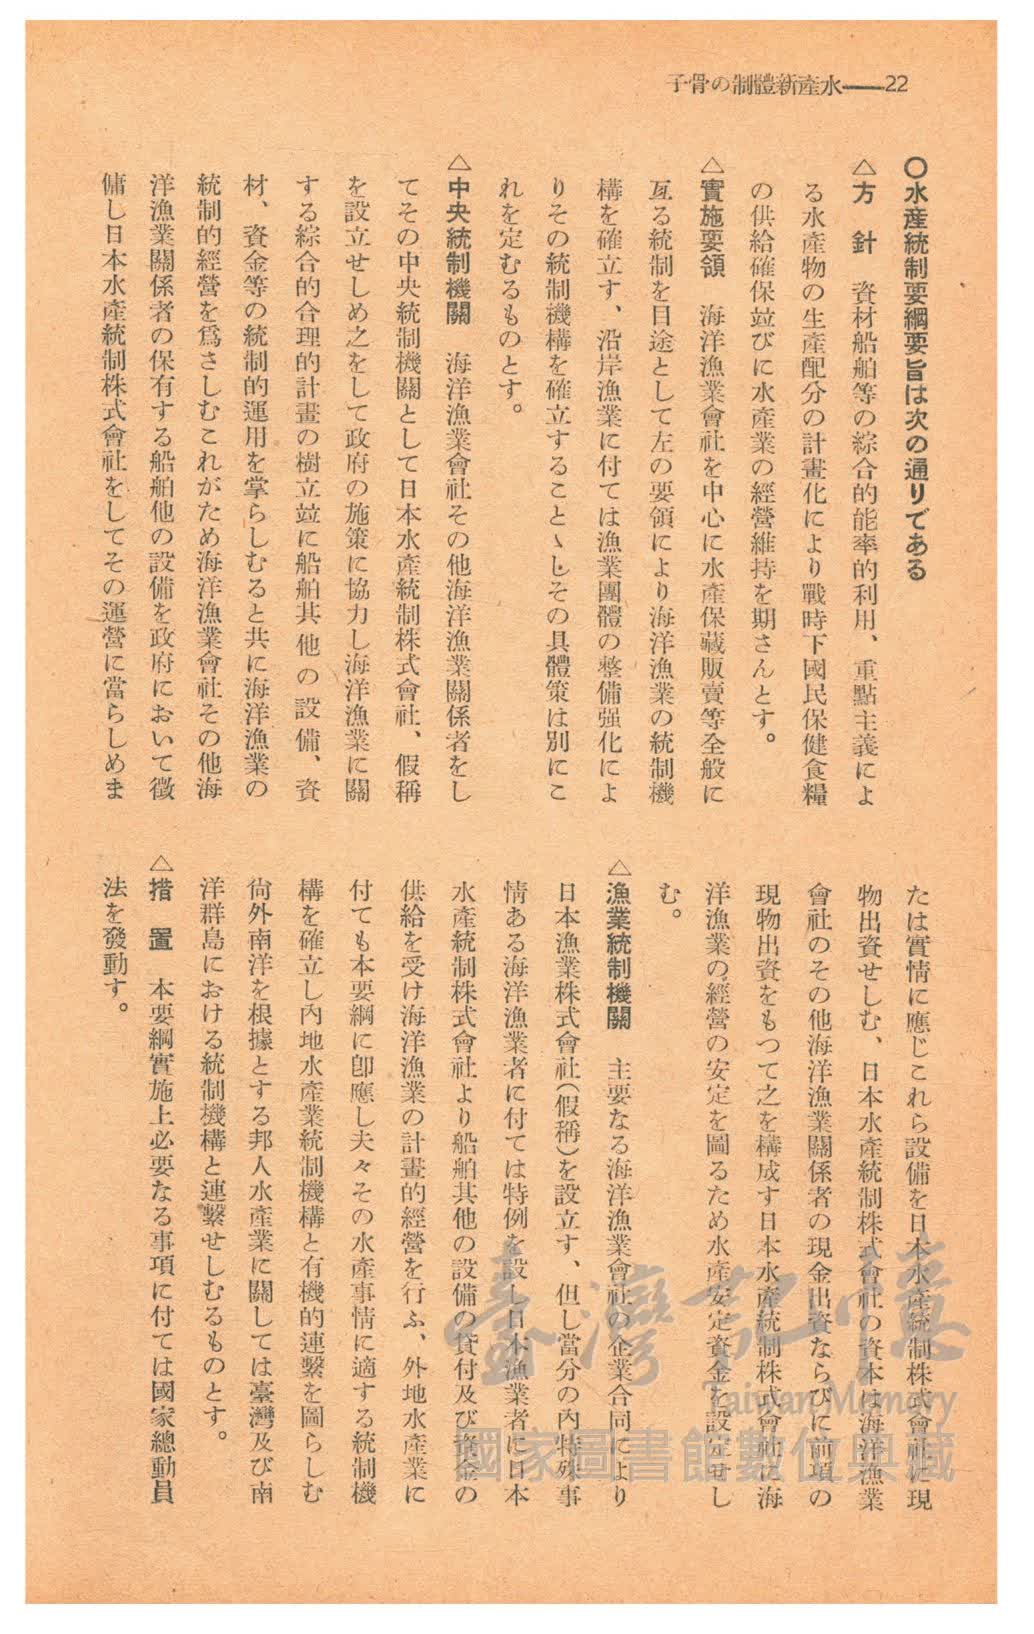 子骨の制體新產水——22
〇水産統制要綱要旨は次の通りである
△方　針　資材船舶等の綜合的能率的利用、重點主義によ
る水產物の生產配分の計畫化により戰時下國民保健食糧
の供給確保竝びに水產業の經營維持を期さんとす。
△實施要領　海洋漁業會社を中心に水產保藏販賣等全般に
亙る統制を目途として左の要領により海洋漁業の統制機
構を確立す、沿岸漁業に付ては漁業團體の整備强化によ
りその統制機構を確立することゝしその具體策は別にこ
れを定むるものとす。
△中央統制機關　海洋漁業會社その他海洋漁業關係者をし
てその中央統制機關として日本水產統制株式會社、假稱
を設立せしめ之をして政府の施策に協力し海洋漁業に關
する綜合的合理的計畫の樹立竝に船舶其他の設備、資
材、資金等の統制的運用を掌らしむると共に海洋漁業の
統制的經營を爲さしむこれがため海洋漁業會社その他海
洋漁業關係者の保有する船舶他の設備を政府において徵
傭し日本水產統制株式會社をしてその運營に當らしめま
たは實情に應じこれら設備を日本水產統制株式會社に現
物出資せしむ、日本水產統制株式會社の資本は海洋漁業
會社のその他海洋漁業關係者の現金出資ならびに前項の
現物出資をもつて之を構成す日本水產統制株式會社に海
洋漁業の經營の安定を圖るため水產安定資金を設定せし
む。
△漁業統制機關　主要なる海洋漁業會社の企業合同により
日本漁業株式會社（假稱）を設立す、但し當分の內特殊事
情ある海洋漁業者に付ては特例を設し日本漁業者に日本
水產統制株式會社より船舶其他の設備の貸付及び資金の
供給を受け海洋漁業の計畫的經營を行ふ、外地水產業に
付ても本要綱に卽應し夫々その水產事情に適する統制機
構を確立し內地水產業統制機構と有機的連繫を圖らしむ
尙外南洋を根據とする邦人水產業に關しては臺灣及び南
洋群島における統制機構と連繫せしむるものとす。
△措　置　本要綱實施上必要なる事項に付ては國家總動員
法を發動す。
臺灣記憶
Taiwan Memory
國家圖書館數位典藏